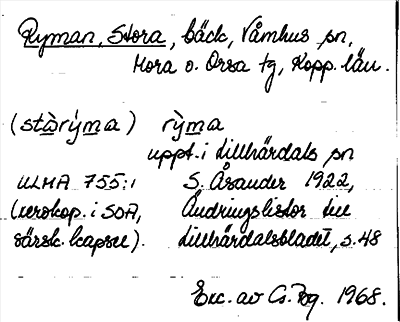 Ryman, Stora, bäck, Våmhus sn,
Mora o. Orsa tg, Kopp. län.
(stòrýma) rỳma
uppt. i Lillhärdals sn
ULMA 755:1 S. Åsander 1922,
(xerokop. i SOA, Ändringslistor till
särsk. kapsel). Lillhärdalsbladet, s. 48
Exc. av Cs. Bg. 1968.